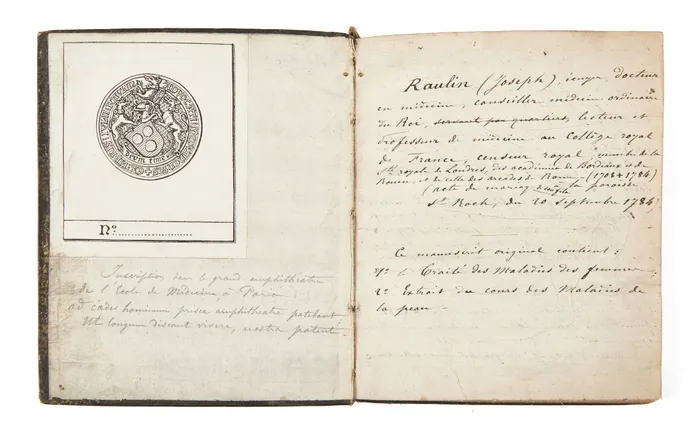 DEUM TIME
Nº
Inscription dans le grand amphithéâtre
de l'Ecole de Médecine à Paris
ad cædes hominum prisca amphitheatra patebant
Ut longum discant vivere, nostra patent.
Raulin (Joseph), docteur
en médecine, conseiller médecin ordinaire
du Roi, servant par quartier, lecteur et
professeur de médecine au Collège royal
de France, censeur royal, membre de la
Sté royale de Londres, des académies de Bordeaux et de
Rouen, et de celle des arcades de Rome - (1708 + 1784)
(acte de mariage de la paroisse
St. Roch, du 20 septembre 1784)
Ce manuscrit original contient :
1º le Traité des Maladies des femmes
2º Extrait du cours des Maladies de
la peau -